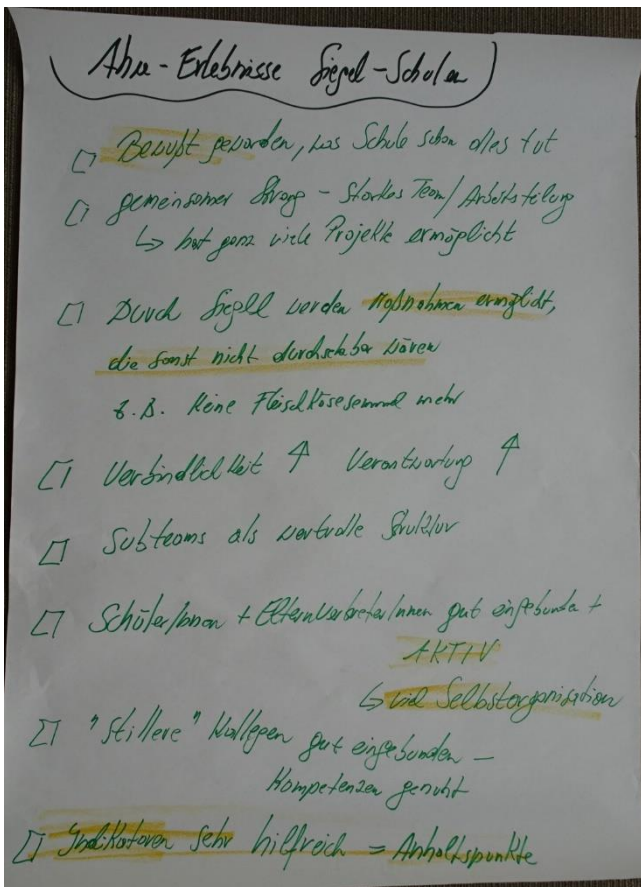 Aha-Erlebnisse Siegel-Schulen
Bewußt geworden, was Schule schon alles tut
gemeinsamer Strang - Starkes Team/Arbeitsteilung
↳ hat ganz viele Projekte ermöglicht
Durch Siegel werden Maßnahmen ermöglicht,
die sonst nicht durchsetzbar wären
z.B. Keine Fleischkäsesemmel mehr
Verbindlichkeit ↑ Verantwortung ↑
Subteams als wertvolle Struktur
SchülerInnen + ElternvertreterInnen gut eingebunden +
AKTIV
↳ viel Selbstorganisation
"Stillere" Kollegen gut eingebunden -
Kompetenzen genutzt
Indikatoren sehr hilfreich = Anhaltspunkte